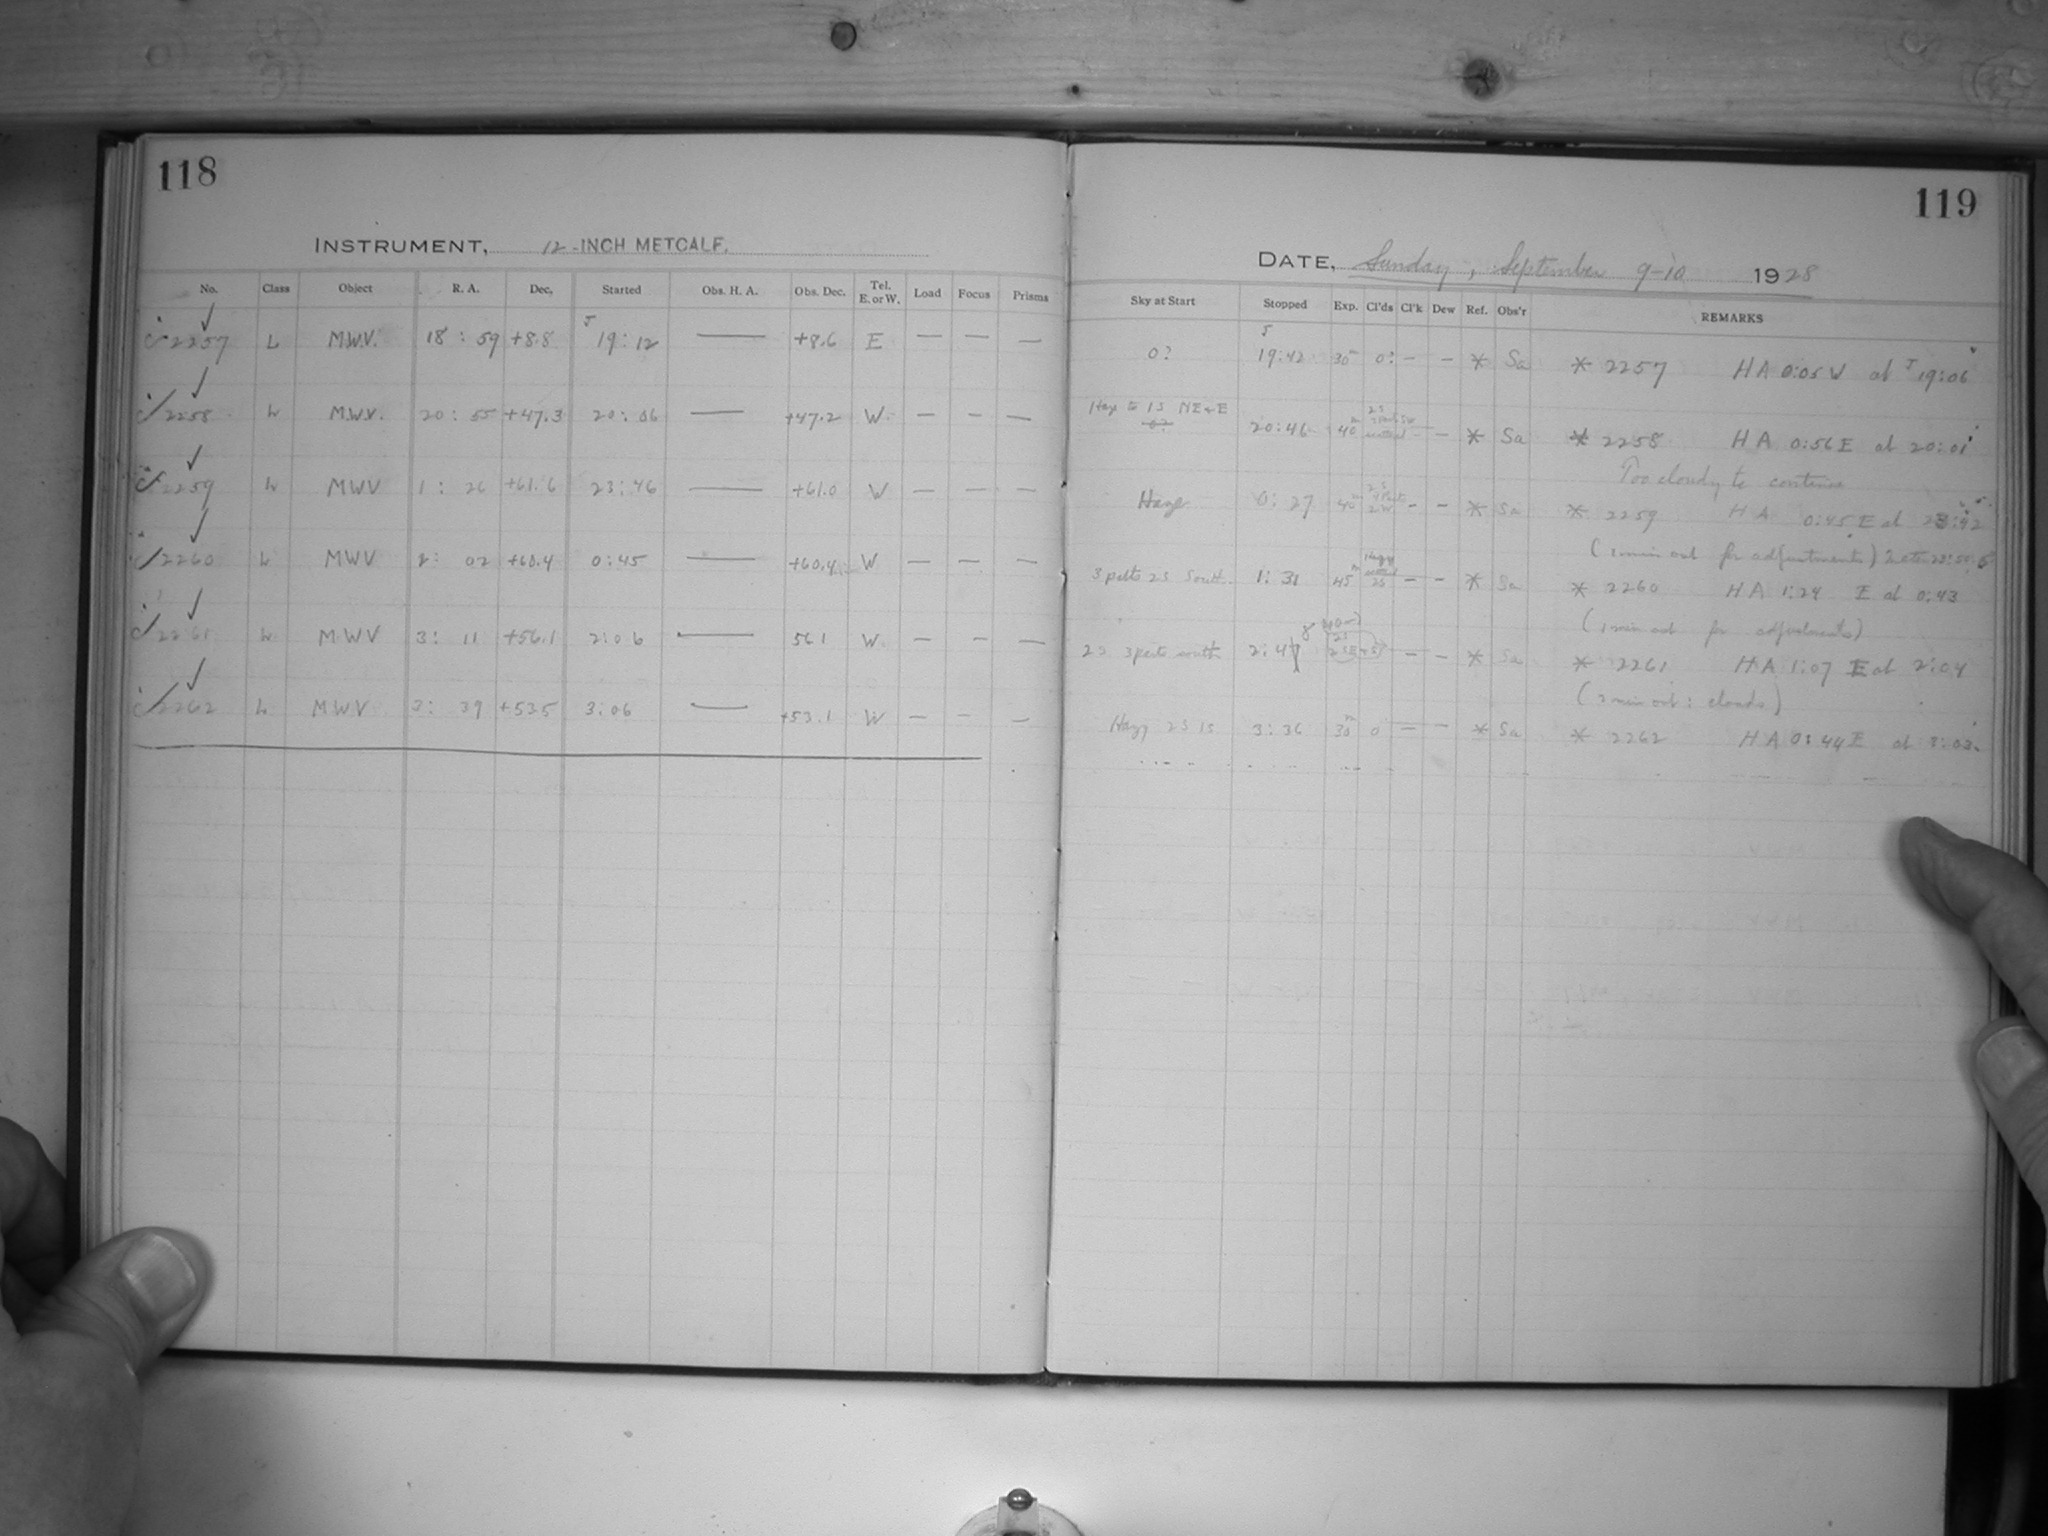 118
INSTRUMENT, 12-INCH METCALF.
No. Class Object R. A. Dec. Started Obs. H. A. Obs. Dec. Tel. E. or W. Load Focus Prisms
2257 L M.W.V. 18 : 59 +8.8 19:12 — +8.6 E — — —
2258 L M.W.V. 20 : 55 +47.3 20:06 — +47.2 W. — — —
2259 L MWV 1 : 26 +61.6 23:46 — +61.0 W — — —
2260 L MWV 2: 02 +60.4 0:45 — +60.4 W — — —
2261 L MWV 3: 11 +56.1 2:06 — 56.1 W. — — —
2262 L MWV 3: 39 +53.5 3:06 — +53.1 W — — —
119
DATE, Sunday, September 9-10 1928
Sky at Start Stopped Exp. Cl'ds Cl'k Dew Ref. Obs'r REMARKS
0? 19:42 30 0? — — * Sa * 2257 HA 0:05 W at 19:06
Haze to 1S NE+E 20:46 40 — — * Sa * 2258 HA 0:56 E at 20:01
Too cloudy to continue
Haze 0:27 40 — — * Sa * 2259 HA 0:45 E at 23:42
(1 min out for adjustments)
3 parts 2S South 1:31 45 2S — — * Sa * 2260 HA 1:24 E at 0:43
(1 min out for adjustments)
2S 3 parts south 2:48 — — * Sa * 2261 HA 1:07 E at 2:04
(2 min out : clouds)
Hazy 2S 1S 3:36 30 0 — — * Sa * 2262 HA 0:44 E at 3:03